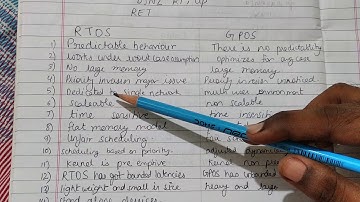 RET
RTOS GPOS
1) Predictable behaviour There is no predictability
2) works under worst case assumption optimizes for avg case
3) No large memory large memory
4) Priority invasion major issue Priority invasion
5) Dedicated to single network multi user environment
6) scaleable non scalable
7) time sensitive time insensi
8) flat memory model
9) Unfair scheduling
10) scheduling based on priority. adjusted dynamic
11) Kernel is pre emptive Kernel non
12) RTOS has got bounded latencies GPOS has
13) light weight and small in size heavy and large